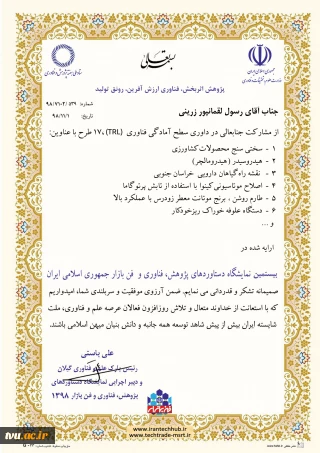 بسمه تعالی
جمهوری اسلامی ایران
وزارت علوم، تحقیقات و فناوری
پژوهش اثربخش، فناوری ارزش آفرین، رونق تولید
شماره: ۹۸/۷۱۰۲/۵۳۹
تاریخ: ۹۸/۱۱/۱
جناب آقای رسول لقمانپور زرینی
از مشارکت جنابعالی در داوری سطح آمادگی فناوری (TRL) ۱۷ طرح با عناوین:
۱ - سختی سنج محصولات کشاورزی
۲ - هیدروسیدر (هیدرومالچر)
۳ - نقشه راه گیاهان دارویی خراسان جنوبی
۴ - اصلاح موتاسیونی کینوا با استفاده از تابش پرتو گاما
۵ - طارم روشن ، برنج موتانت معطر زودرس با عملکرد بالا
۶ - دستگاه علوفه خوراک ریزخودکار
و ...
ارایه شده در
بیستمین نمایشگاه دستاوردهای پژوهش، فناوری و فن بازار جمهوری اسلامی ایران
صمیمانه تشکر و قدردانی می نمایم. ضمن آرزوی موفقیت و سربلندی شما، امیدواریم
که با استعانت از خداوند متعال و تلاش روزافزون فعالان عرصه علم و فناوری، ملت
شایسته ایران بیش از پیش شاهد توسعه همه جانبه و دانش بنیان میهن اسلامی باشند.
علی باستی
رئیس پارک علم و فناوری گیلان
و دبیر اجرایی نمایشگاه دستاوردهای
پژوهش، فناوری و فن بازار ۱۳۹۸
www.irantechhub.ir
www.techtrade-msrt.ir
tvu.ac.ir